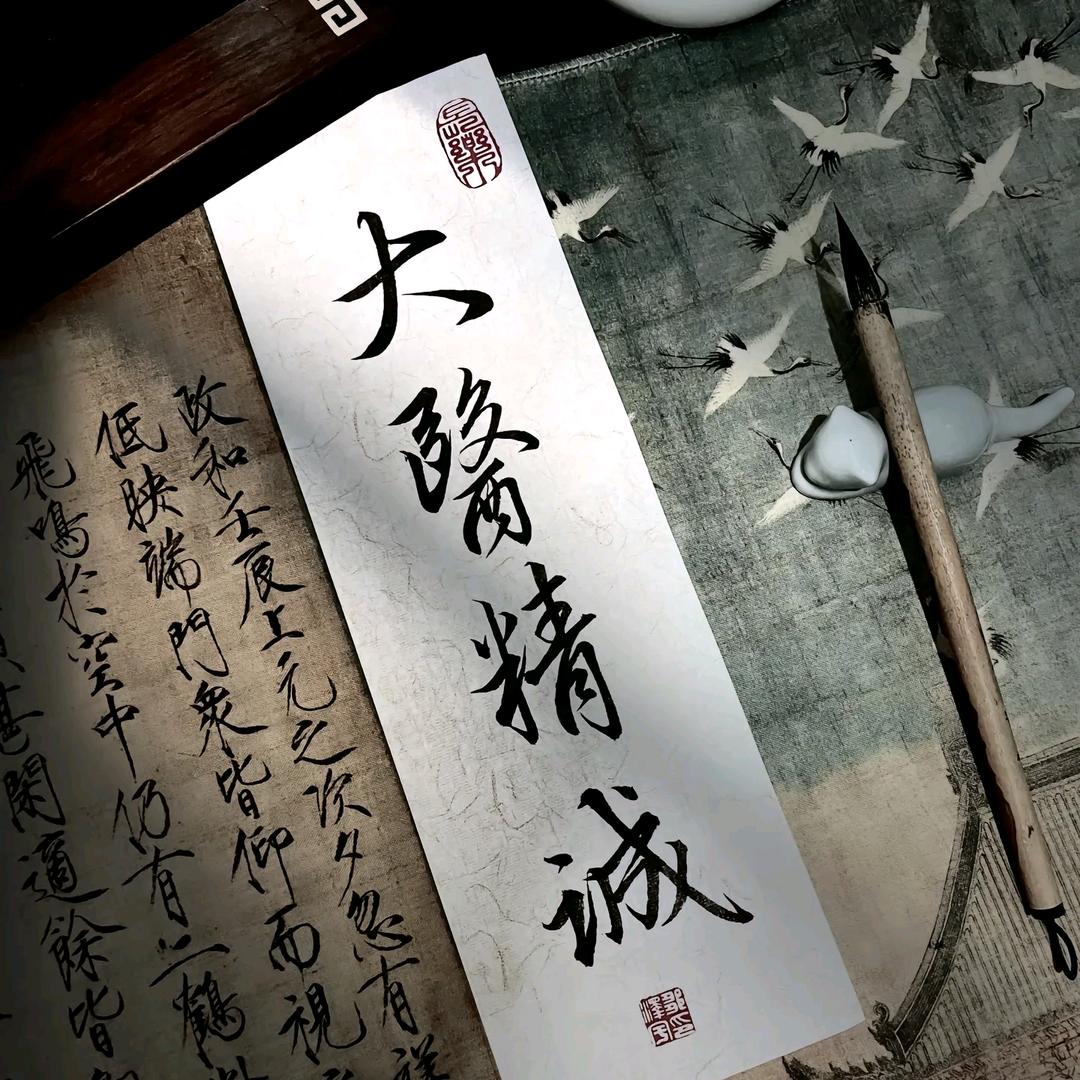 大醫精誠
政和壬辰上元之次夕忽有祥
低映端門衆皆仰而視
飛鳴於空中仍有二鶴
甚閑適餘皆